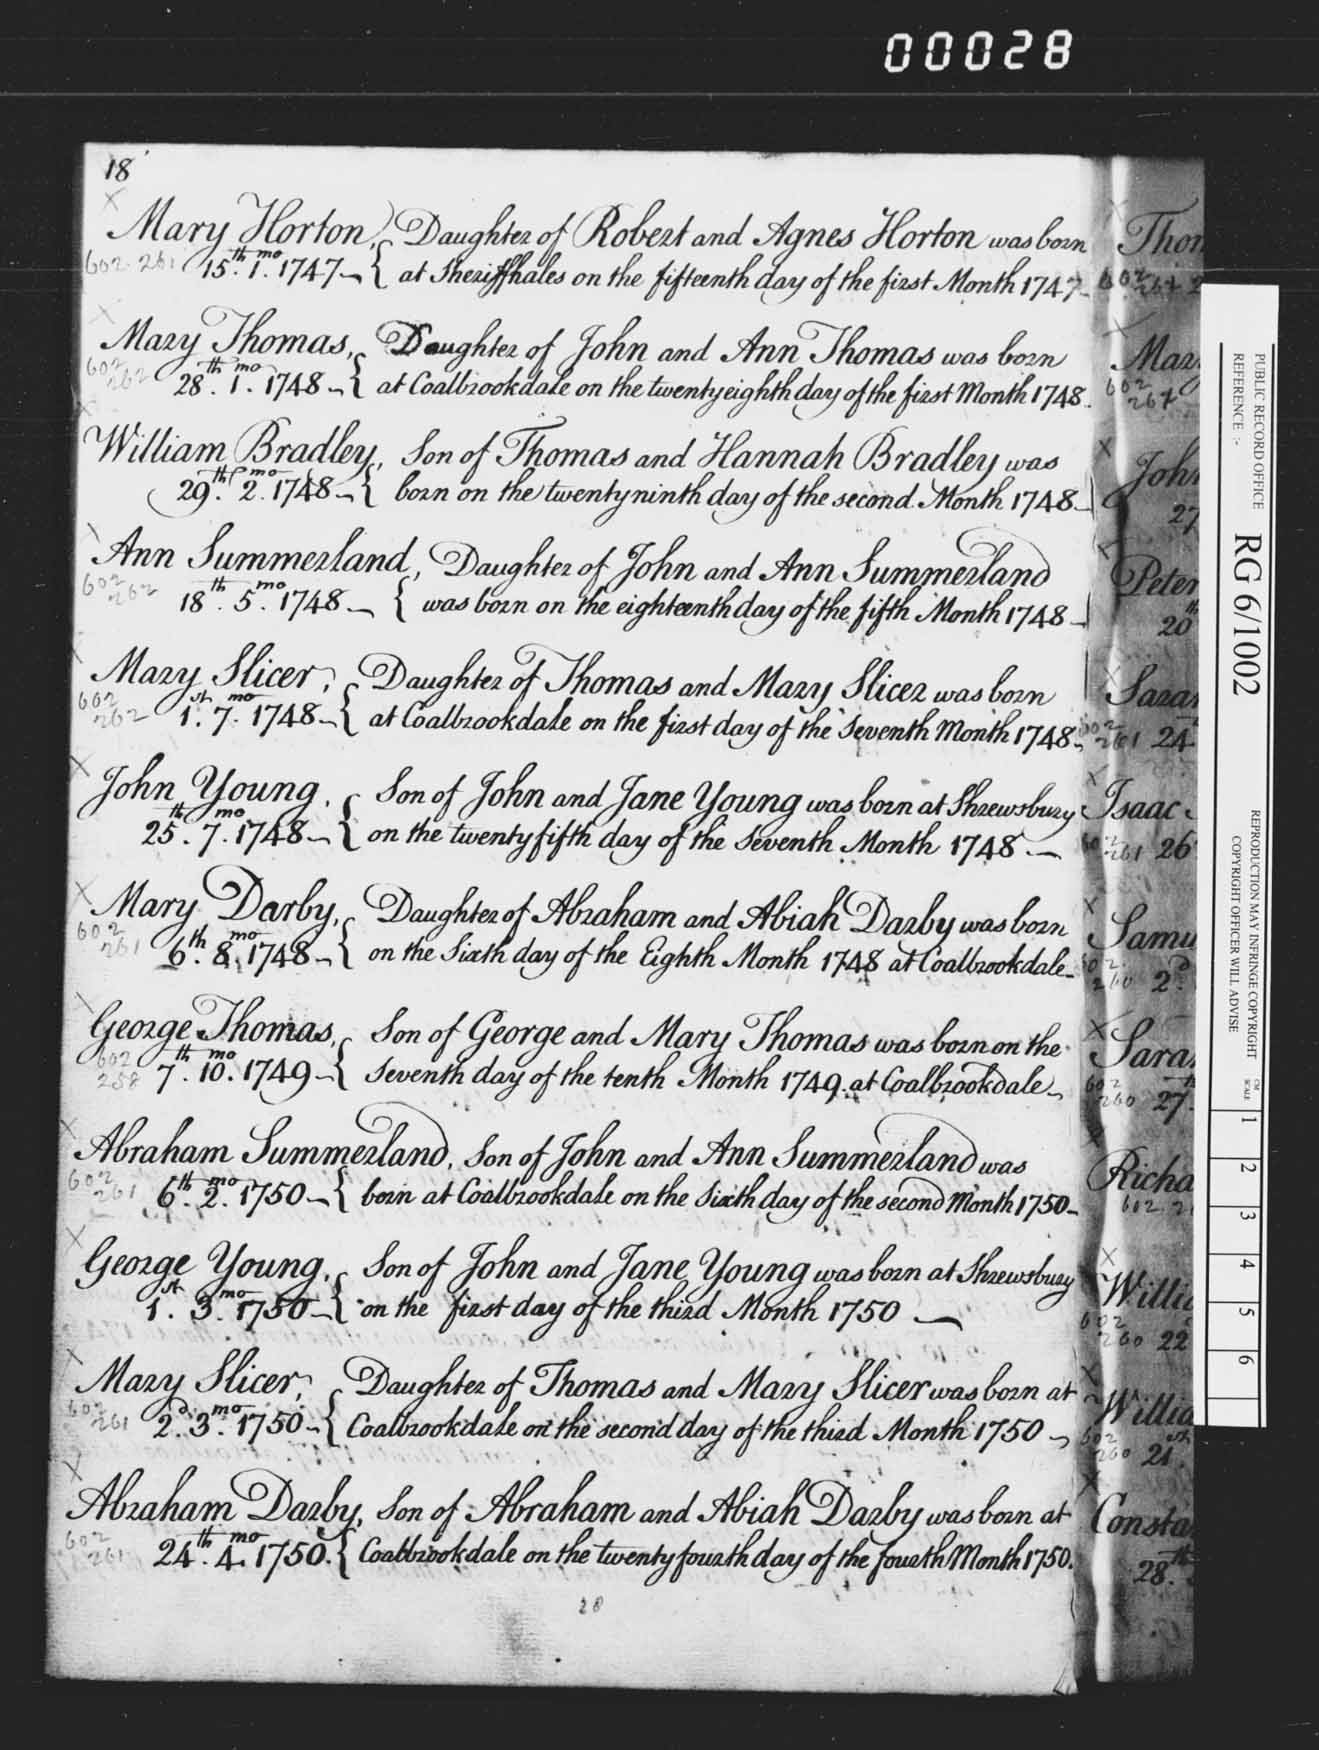 00028
18
Mary Horton, Daughter of Robert and Agnes Horton was born
602 261 15th. 1mo. 1747 { at Sheriffhales on the fifteenth day of the first Month 1747
Mary Thomas, Daughter of John and Ann Thomas was born
602 262 28th. 1mo. 1748 { at Coalbrookdale on the twenty eighth day of the first Month 1748.
William Bradley, Son of Thomas and Hannah Bradley was
29th. 2mo. 1748 { born on the twenty ninth day of the second Month 1748
Ann Summerland, Daughter of John and Ann Summerland
602 262 18th. 5mo. 1748 { was born on the eighteenth day of the fifth Month 1748
Mary Slicer, Daughter of Thomas and Mary Slicer was born
602 262 1st. 7mo. 1748 { at Coalbrookdale on the first day of the Seventh Month 1748
John Young, Son of John and Jane Young was born at Shrewsbury
25th. 7mo. 1748 { on the twenty fifth day of the Seventh Month 1748
Mary Darby, Daughter of Abraham and Abiah Darby was born
602 261 6th. 8mo. 1748 { on the Sixth day of the Eighth Month 1748 at Coalbrookdale
George Thomas, Son of George and Mary Thomas was born on the
602 258 7th. 10mo. 1749 { Seventh day of the tenth Month 1749. at Coalbrookdale
Abraham Summerland, Son of John and Ann Summerland was
602 261 6th. 2mo. 1750 { born at Coalbrookdale on the Sixth day of the second Month 1750
George Young, Son of John and Jane Young was born at Shrewsbury
1st. 3mo. 1750 { on the first day of the third Month 1750
Mary Slicer, Daughter of Thomas and Mary Slicer was born at
602 261 2d. 3mo. 1750 { Coalbrookdale on the second day of the third Month 1750
Abraham Darby, Son of Abraham and Abiah Darby was born at
602 261 24th. 4mo. 1750. { Coalbrookdale on the twenty fourth day of the fourth Month 1750.
28
Thom
602 264 2
Mary
602 264
John
27
Peter
20th
Sarah
602 261 24
Isaac
602 261 26
Samu
602 260 2d
Sara
602 260 27
Richa
602 2
Willia
602 260 22
Willia
602 260 21st
Consta
28th
PUBLIC RECORD OFFICE
REFERENCE :-
RG 6/1002
REPRODUCTION MAY INFRINGE COPYRIGHT
COPYRIGHT OFFICER WILL ADVISE
CM
SCALE
1
2
3
4
5
6